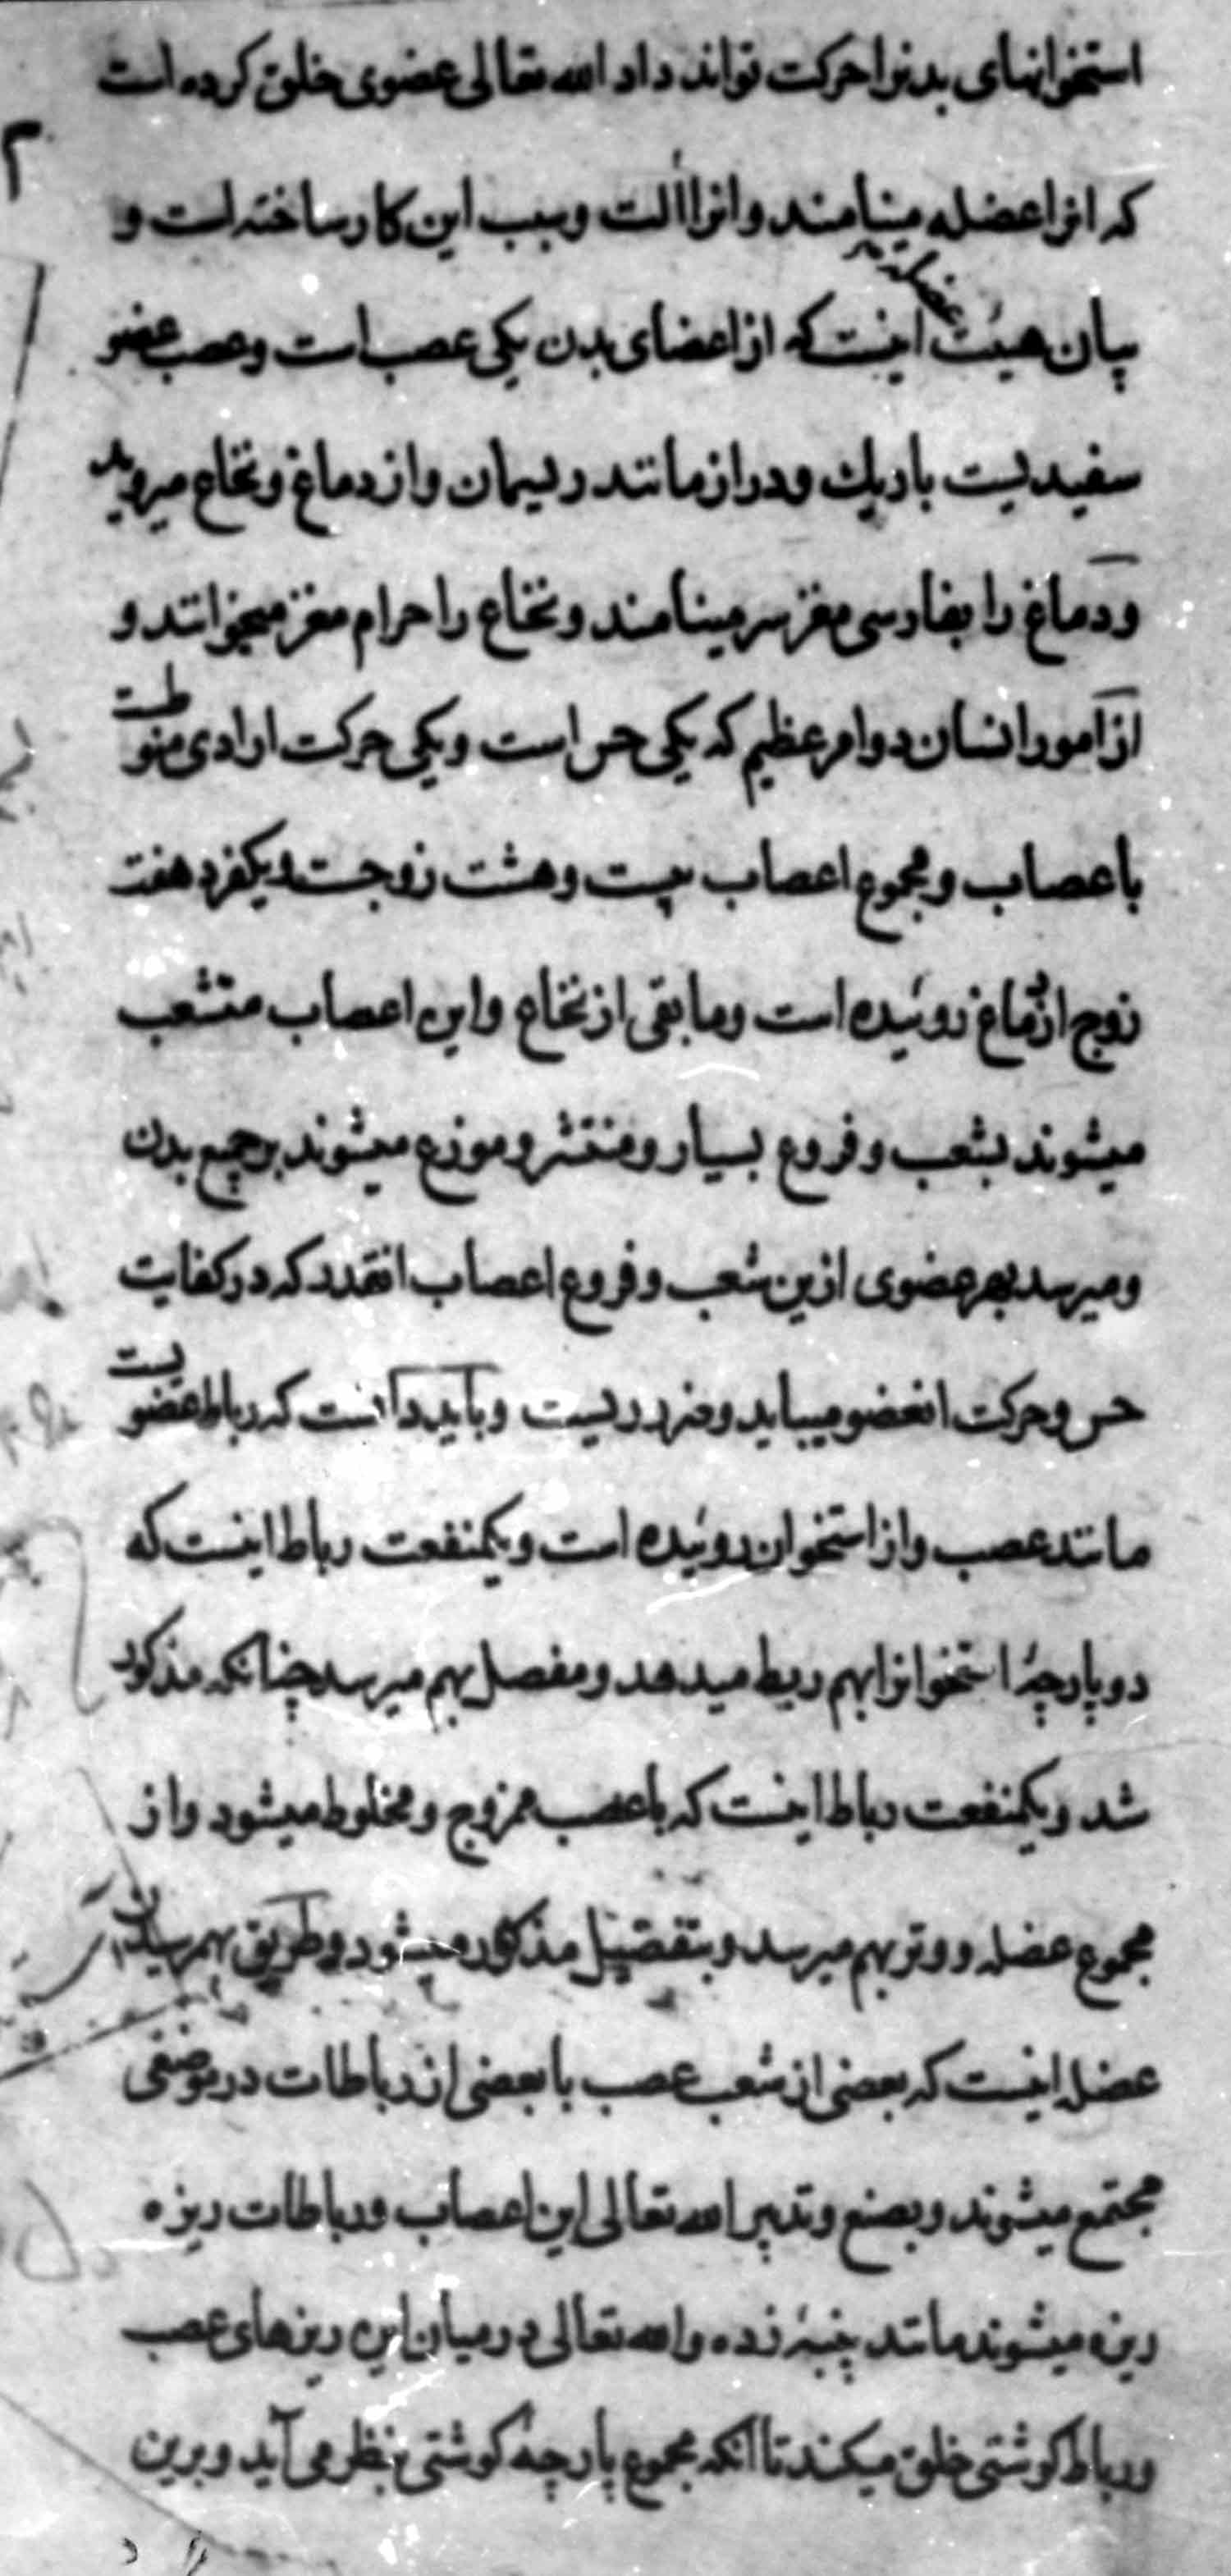 استخوانهای بدنرا حرکت تواند داد الله تعالی عضوی خلق کرده است
که انرا عضله مینامند و انرا آلت و سبب این کار ساخته است و
بیان هیئت عضله اینست که از اعضای بدن یکی عصب است و عصب عضو
سفیدیست باریك و دراز مانند ریسمان و از دماغ و نخاع میروید
و دماغ را بفارسی مغز سر مینامند و نخاع را حرام مغز میخوانند و
از امور انسان دو امر عظیم که یکی حس است و یکی حرکت ارادی منوطست
باعصاب و مجموع اعصاب بیست و هشت زوجست و یکفرد هفت
زوج از دماغ روئیده است و مابقی از نخاع و این اعصاب متشعب
میشوند بشعب و فروع بسیار و منتشر و موزع میشوند بر جمیع بدن
و میرسد بهر عضوی ازین شعب و فروع اعصاب انقدر که در کفایت
حس و حرکت انعضو میباید و ضروریست و باید دانست که رباط عضویست
مانند عصب و از استخوان روئیده است و یکمنفعت رباط اینست که
دو پارچهٔ استخوانرا بهم ربط میدهد و مفصل بهم میرسد چنانکه مذکور
شد و یکمنفعت رباط اینست که با عصب ممزوج و مخلوط میشود و از
مجموع عضله و وتر بهم میرسد و بتفصیل مذکور میشود و طریق بهم رسیدن
عضله اینست که بعضی از شعب عصب با بعضی از رباطات در موضعی
مجتمع میشوند و بصنع و تدبیر الله تعالی این اعصاب و رباطات ریزه
ریزه میشوند مانند پنبهٔ زده و الله تعالی در میان این ریزهای عصب
و رباط گوشتی خلق میکند تا انکه مجموع پارچهٔ گوشتی بنظر می آید و برین